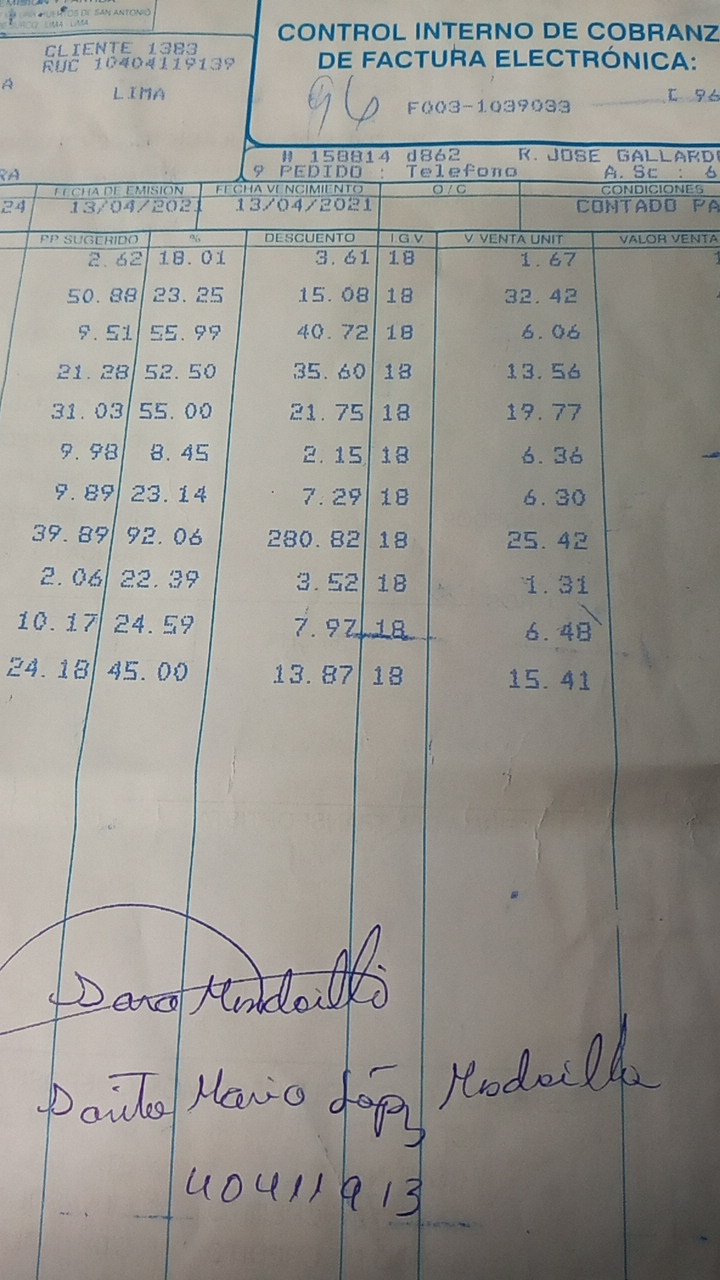 PUERTOS DE SAN ANTONIO
LIMA - LIMA
CLIENTE 1383
RUC 10404119139
A
LIMA
RA
CONTROL INTERNO DE COBRANZ
DE FACTURA ELECTRÓNICA:
96
F003-1039033
[ 96
# 158814 d862 R. JOSE GALLARD
9 PEDIDO : Telefono A. Sc : 6
FECHA DE EMISION FECHA VENCIMIENTO O / C CONDICIONES
24 13/04/2021 13/04/2021 CONTADO PA
PP SUGERIDO % DESCUENTO I.G.V V VENTA UNIT VALOR VENTA
2.62 18.01 3.61 18 1.67
50.88 23.25 15.08 18 32.42
9.51 55.99 40.72 18 6.06
21.28 52.50 35.60 18 13.56
31.03 55.00 21.75 18 19.77
9.98 8.45 2.15 18 6.36
9.89 23.14 7.29 18 6.30
39.89 92.06 280.82 18 25.42
2.06 22.39 3.52 18 1.31
10.17 24.59 7.97 18 6.48
24.18 45.00 13.87 18 15.41
López
40411913